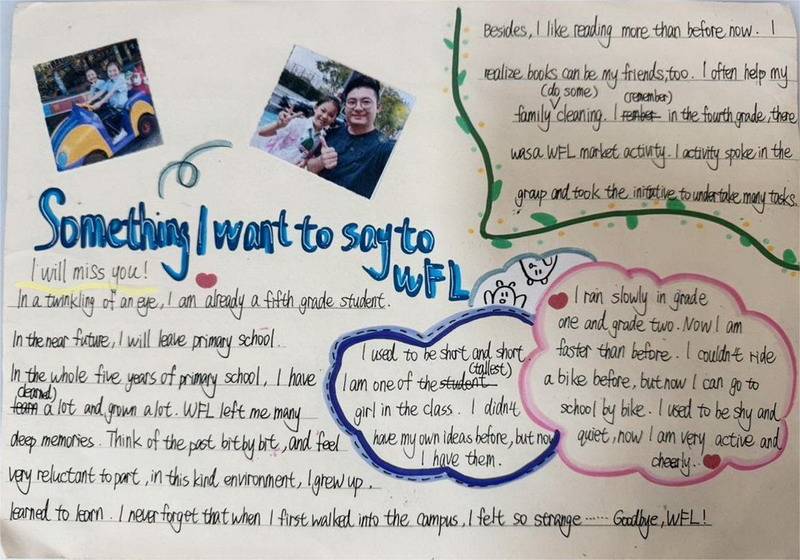 Something I want to say to
WFL
I will miss you!
In a twinkling of an eye, I am already a fifth grade student.
In the near future, I will leave primary school.
In the whole five years of primary school, I have
(learned)
learn a lot and grown a lot. WFL left me many
deep memories. Think of the past bit by bit, and feel
very reluctant to part, in this kind environment, I grew up.
learned to learn. I never forget that when I first walked into the campus, I felt so strange ...... Goodbye, WFL!
I used to be short and short.
(tallest)
I am one of the student
girl in the class. I didn't
have my own ideas before, but now
I have them.
I ran slowly in grade
one and grade two. Now I am
faster than before. I couldn't ride
a bike before, but now I can go to
school by bike. I used to be shy and
quiet, now I am very active and
cheerly.
Besides, I like reading more than before now. I
realize books can be my friends, too. I often help my
(do some) (remember)
family cleaning. I rember in the fourth grade, there
was a WFL market activity. I activity spoke in the
group and took the initiative to undertake many tasks.